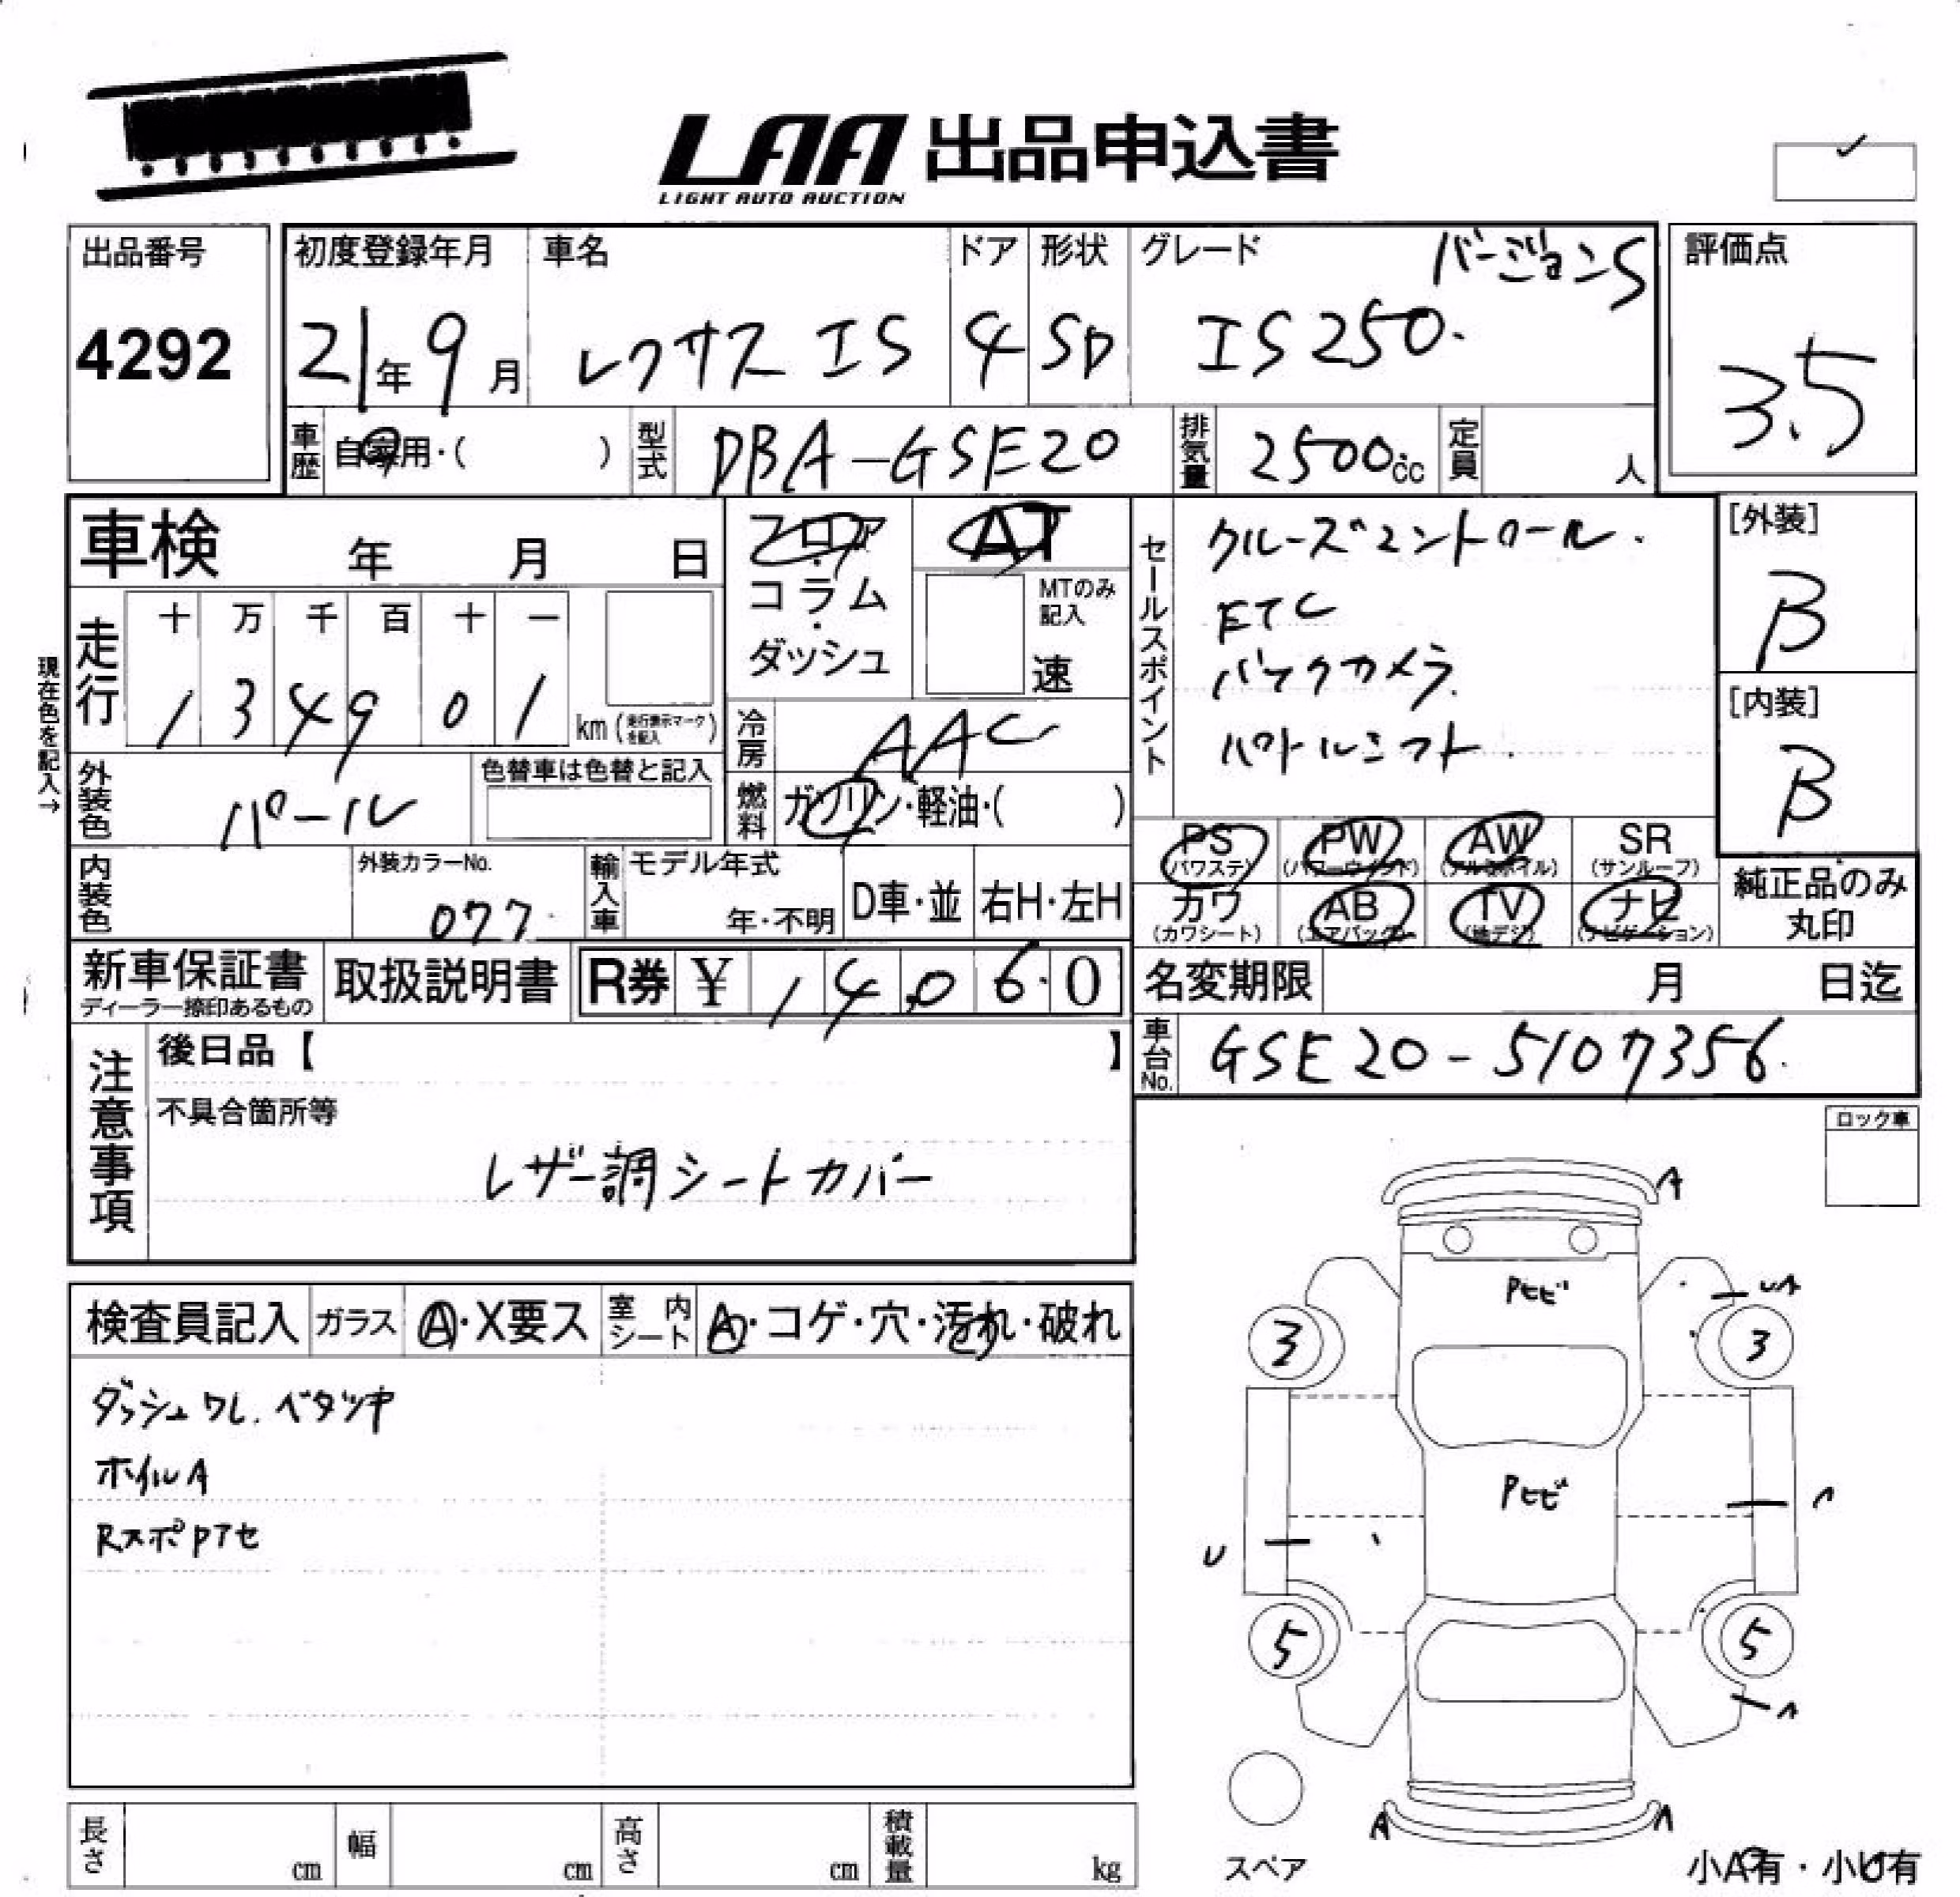 LAA 出品申込書
LIGHT AUTO AUCTION
出品番号
4292
初度登録年月
21年9月
車名
レクサス IS
ドア
4
形状
SD
グレード
バージョンS
IS250.
評価点
3.5
車歴 自家用・( )
型式 DBA-GSE20
排気量 2500cc
定員 人
車検 年 月 日
フロア
・
コラム
・
ダッシュ
AT
MTのみ
記入
速
セールスポイント
クルーズコントロール.
ETC
バックカメラ.
パドルシフト.
[外装]
B
[内装]
B
現在色を記入→
走行
十 万 千 百 十 一
1 3 4 9 0 1 km (走行表示マークを記入)
冷房 AAC
外装色 パール
色替車は色替と記入
燃料 ガソリン・軽油・( )
PS (パワステ)
PW (パワーウインド)
AW (アルミホイル)
SR (サンルーフ)
カワ (カワシート)
AB (エアバック)
TV (地デジ)
ナビ (ナビゲーション)
純正品のみ
丸印
内装色
外装カラーNo.
077.
輸入車
モデル年式
年・不明
D車・並
右H・左H
新車保証書
ディーラー捺印あるもの
取扱説明書
R券 ¥ 1 4,0 6 0
名変期限 月 日迄
車台No. GSE20-5107356.
注意事項
後日品【 】
不具合箇所等
レザー調シートカバー
ロック車
検査員記入
ガラス Ⓐ・X要ス
室内シート A・コゲ・穴・汚れ・破れ
ダッシュワレ.ベタツキ
ホイルA
RスポPアセ
A
Pヒビ
UA
3
3
Pヒビ
A
U
5
5
A
A
A
スペア
小A有・小U有
長さ cm
幅 cm
高さ cm
積載量 kg